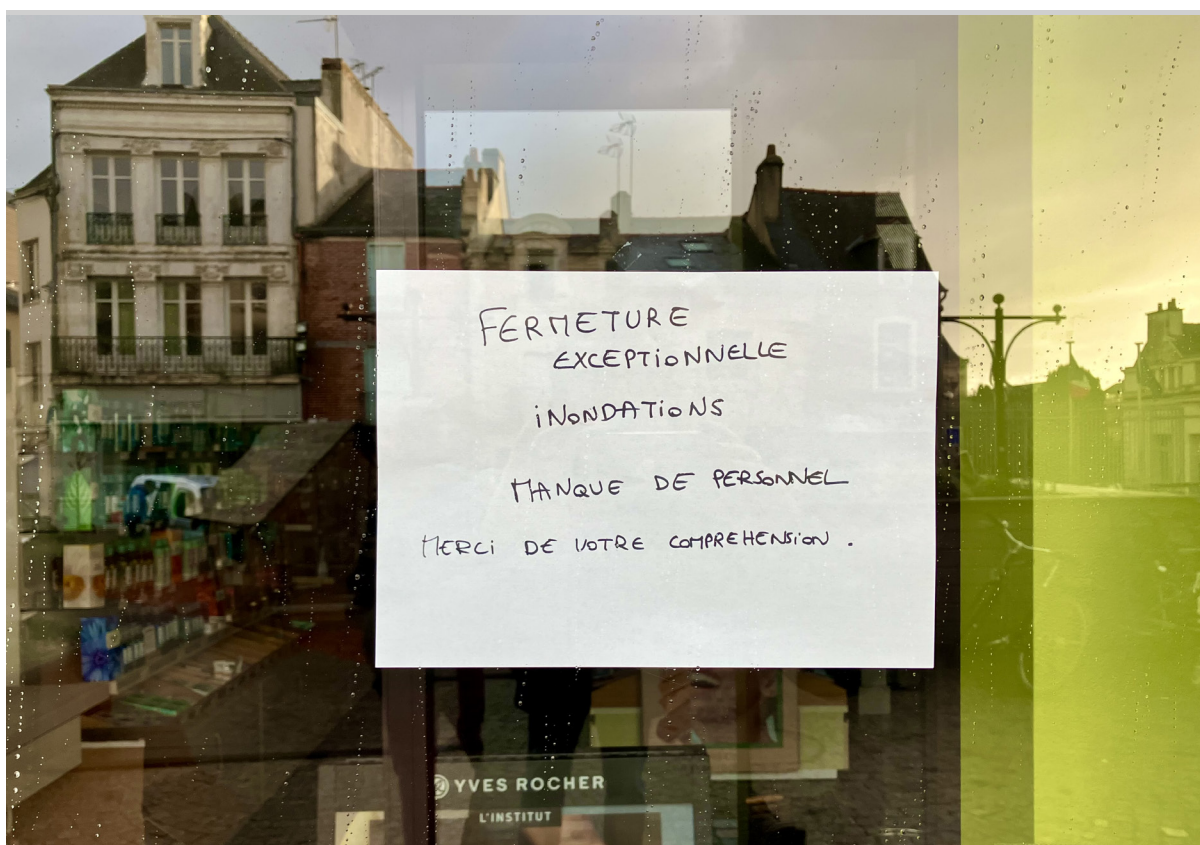 FERMETURE
EXCEPTiONNELLE
iNONDATiONS
MANQUE DE PERSONNEL
MERCi DE VOTRE COMPREHENSiON .
YVES ROCHER
L'INSTITUT